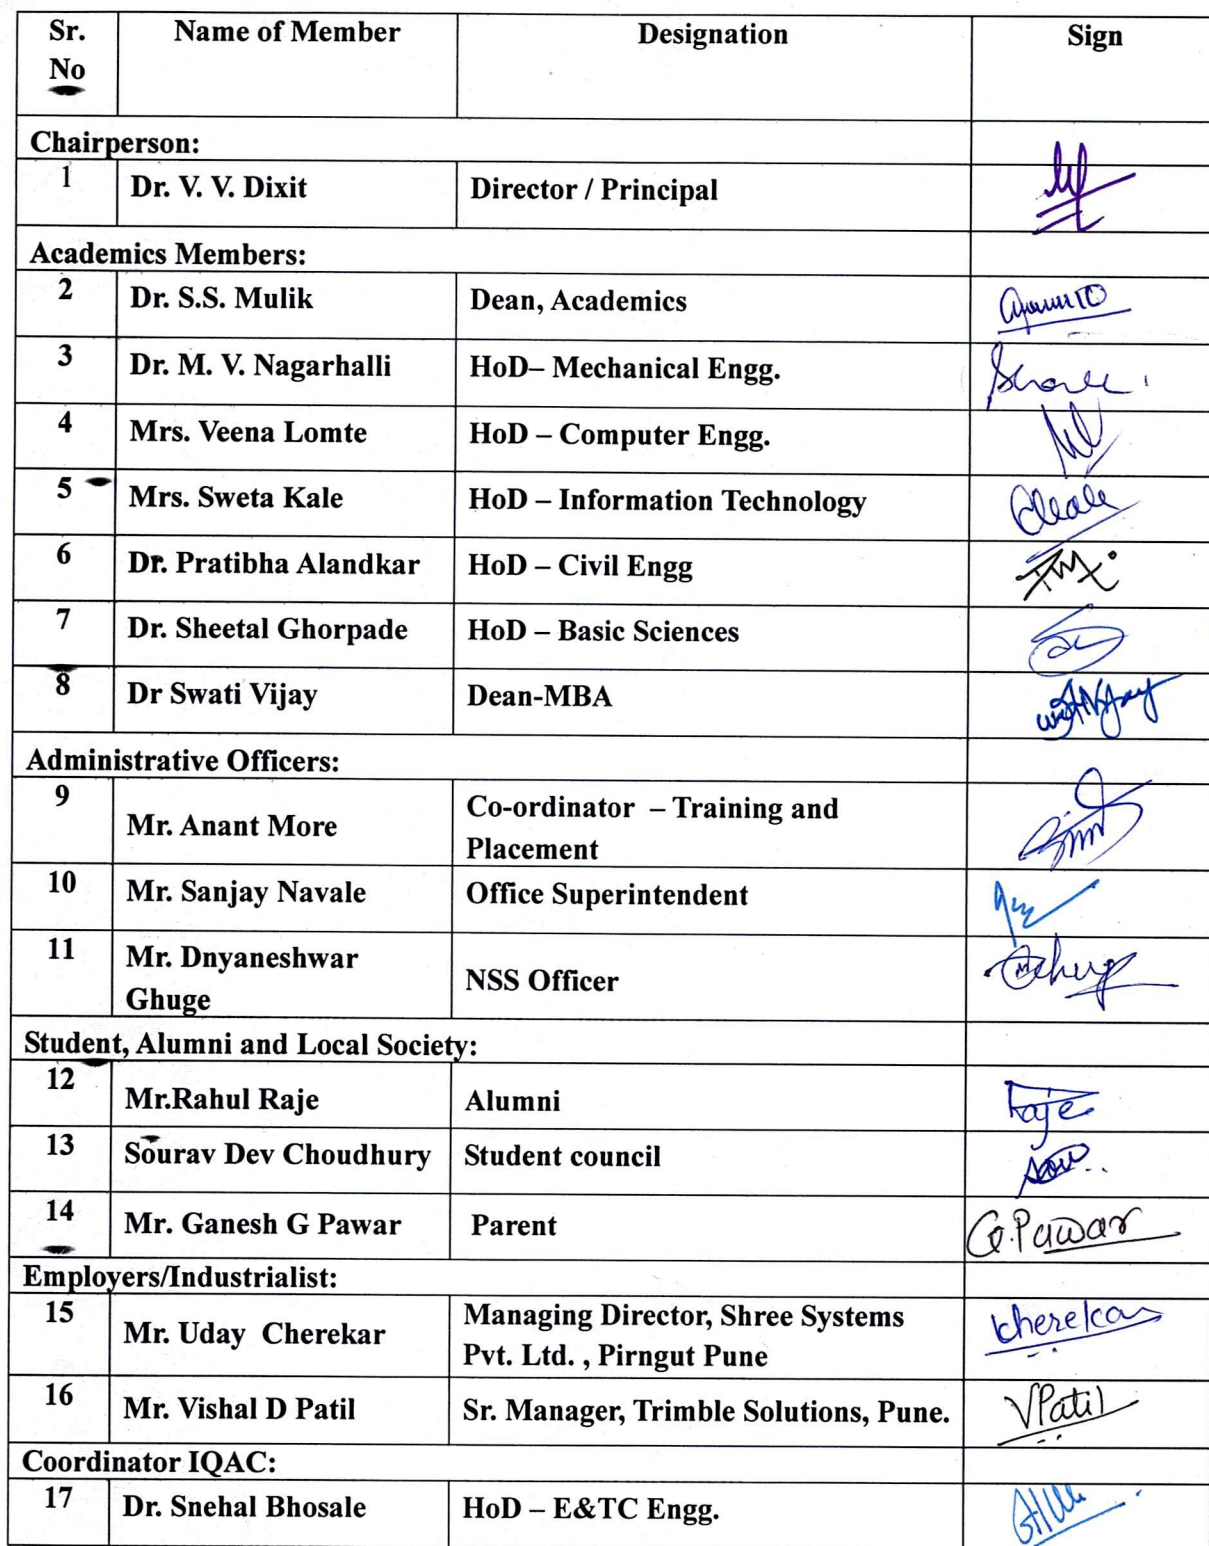 Sr. No Name of Member Designation Sign
Chairperson:
1 Dr. V. V. Dixit Director / Principal
Academics Members:
2 Dr. S.S. Mulik Dean, Academics
3 Dr. M. V. Nagarhalli HoD– Mechanical Engg.
4 Mrs. Veena Lomte HoD – Computer Engg.
5 Mrs. Sweta Kale HoD – Information Technology
6 Dr. Pratibha Alandkar HoD – Civil Engg
7 Dr. Sheetal Ghorpade HoD – Basic Sciences
8 Dr Swati Vijay Dean-MBA
Administrative Officers:
9 Mr. Anant More Co-ordinator – Training and
Placement
10 Mr. Sanjay Navale Office Superintendent
11 Mr. Dnyaneshwar
Ghuge NSS Officer
Student, Alumni and Local Society:
12 Mr.Rahul Raje Alumni Raje
13 Sourav Dev Choudhury Student council
14 Mr. Ganesh G Pawar Parent G.Pawar
Employers/Industrialist:
15 Mr. Uday Cherekar Managing Director, Shree Systems
Pvt. Ltd. , Pirngut Pune
16 Mr. Vishal D Patil Sr. Manager, Trimble Solutions, Pune. VPatil
Coordinator IQAC:
17 Dr. Snehal Bhosale HoD – E&TC Engg.